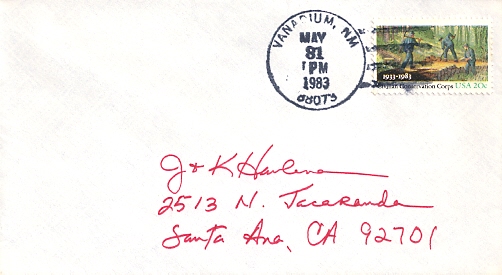 VANADIUM, NM
MAY
31
PM
1983
88073
1933-1983
Civilian Conservation Corps USA 20c
J & K Harlena
2513 N. Jacaranda
Santa Ana, CA 92701